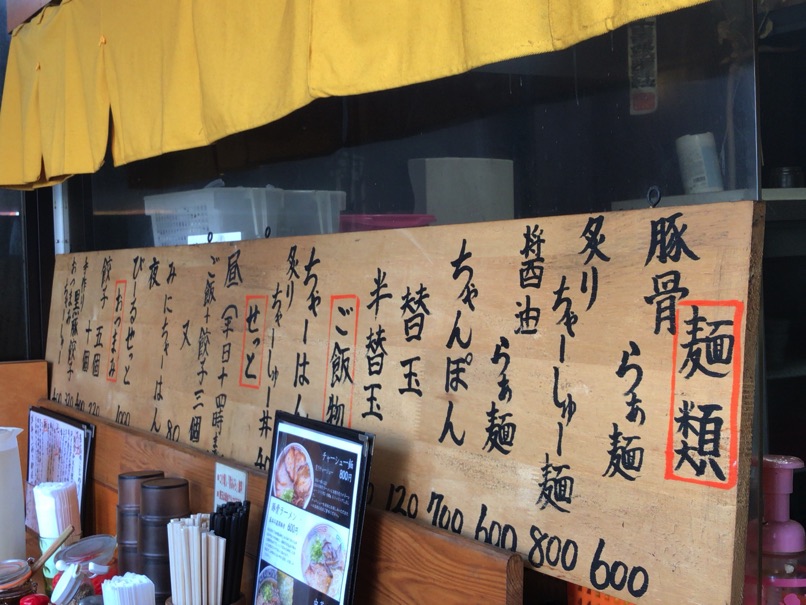 麺類
豚骨らぁ麺 600
炙りちゃーしゅー麺 800
醤油らぁ麺 600
ちゃんぽん 700
替玉 120
半替玉
ご飯物
ちゃーはん
炙りちゃーしゅー丼
せっと
昼(平日十四時
ご飯+餃子三個
又
みにちゃーはん
夜
びーるせっと 1000
おつまみ
餃子 五個
十個
黒豚餃子
チャーシュー麺
800円
600円